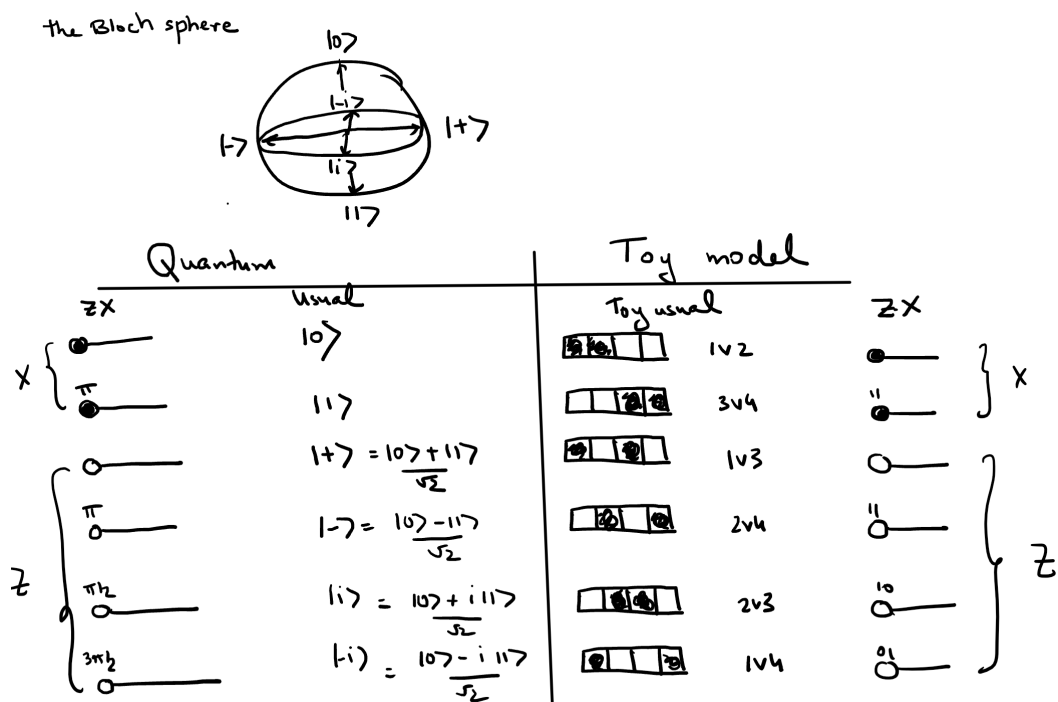 the Bloch sphere
|0>
|-i>
|-> |+>
|i>
|1>
Quantum Toy model
ZX Usual Toy usual ZX
|0> 1v2
X X
π |1> 3v4 11
|+> = |0> + |1> / √2 1v3
π |-> = |0> - |1> / √2 2v4 11
Z Z
π/2 |i> = |0> + i|1> / √2 2v3 10
3π/2 |-i> = |0> - i|1> / √2 1v4 01